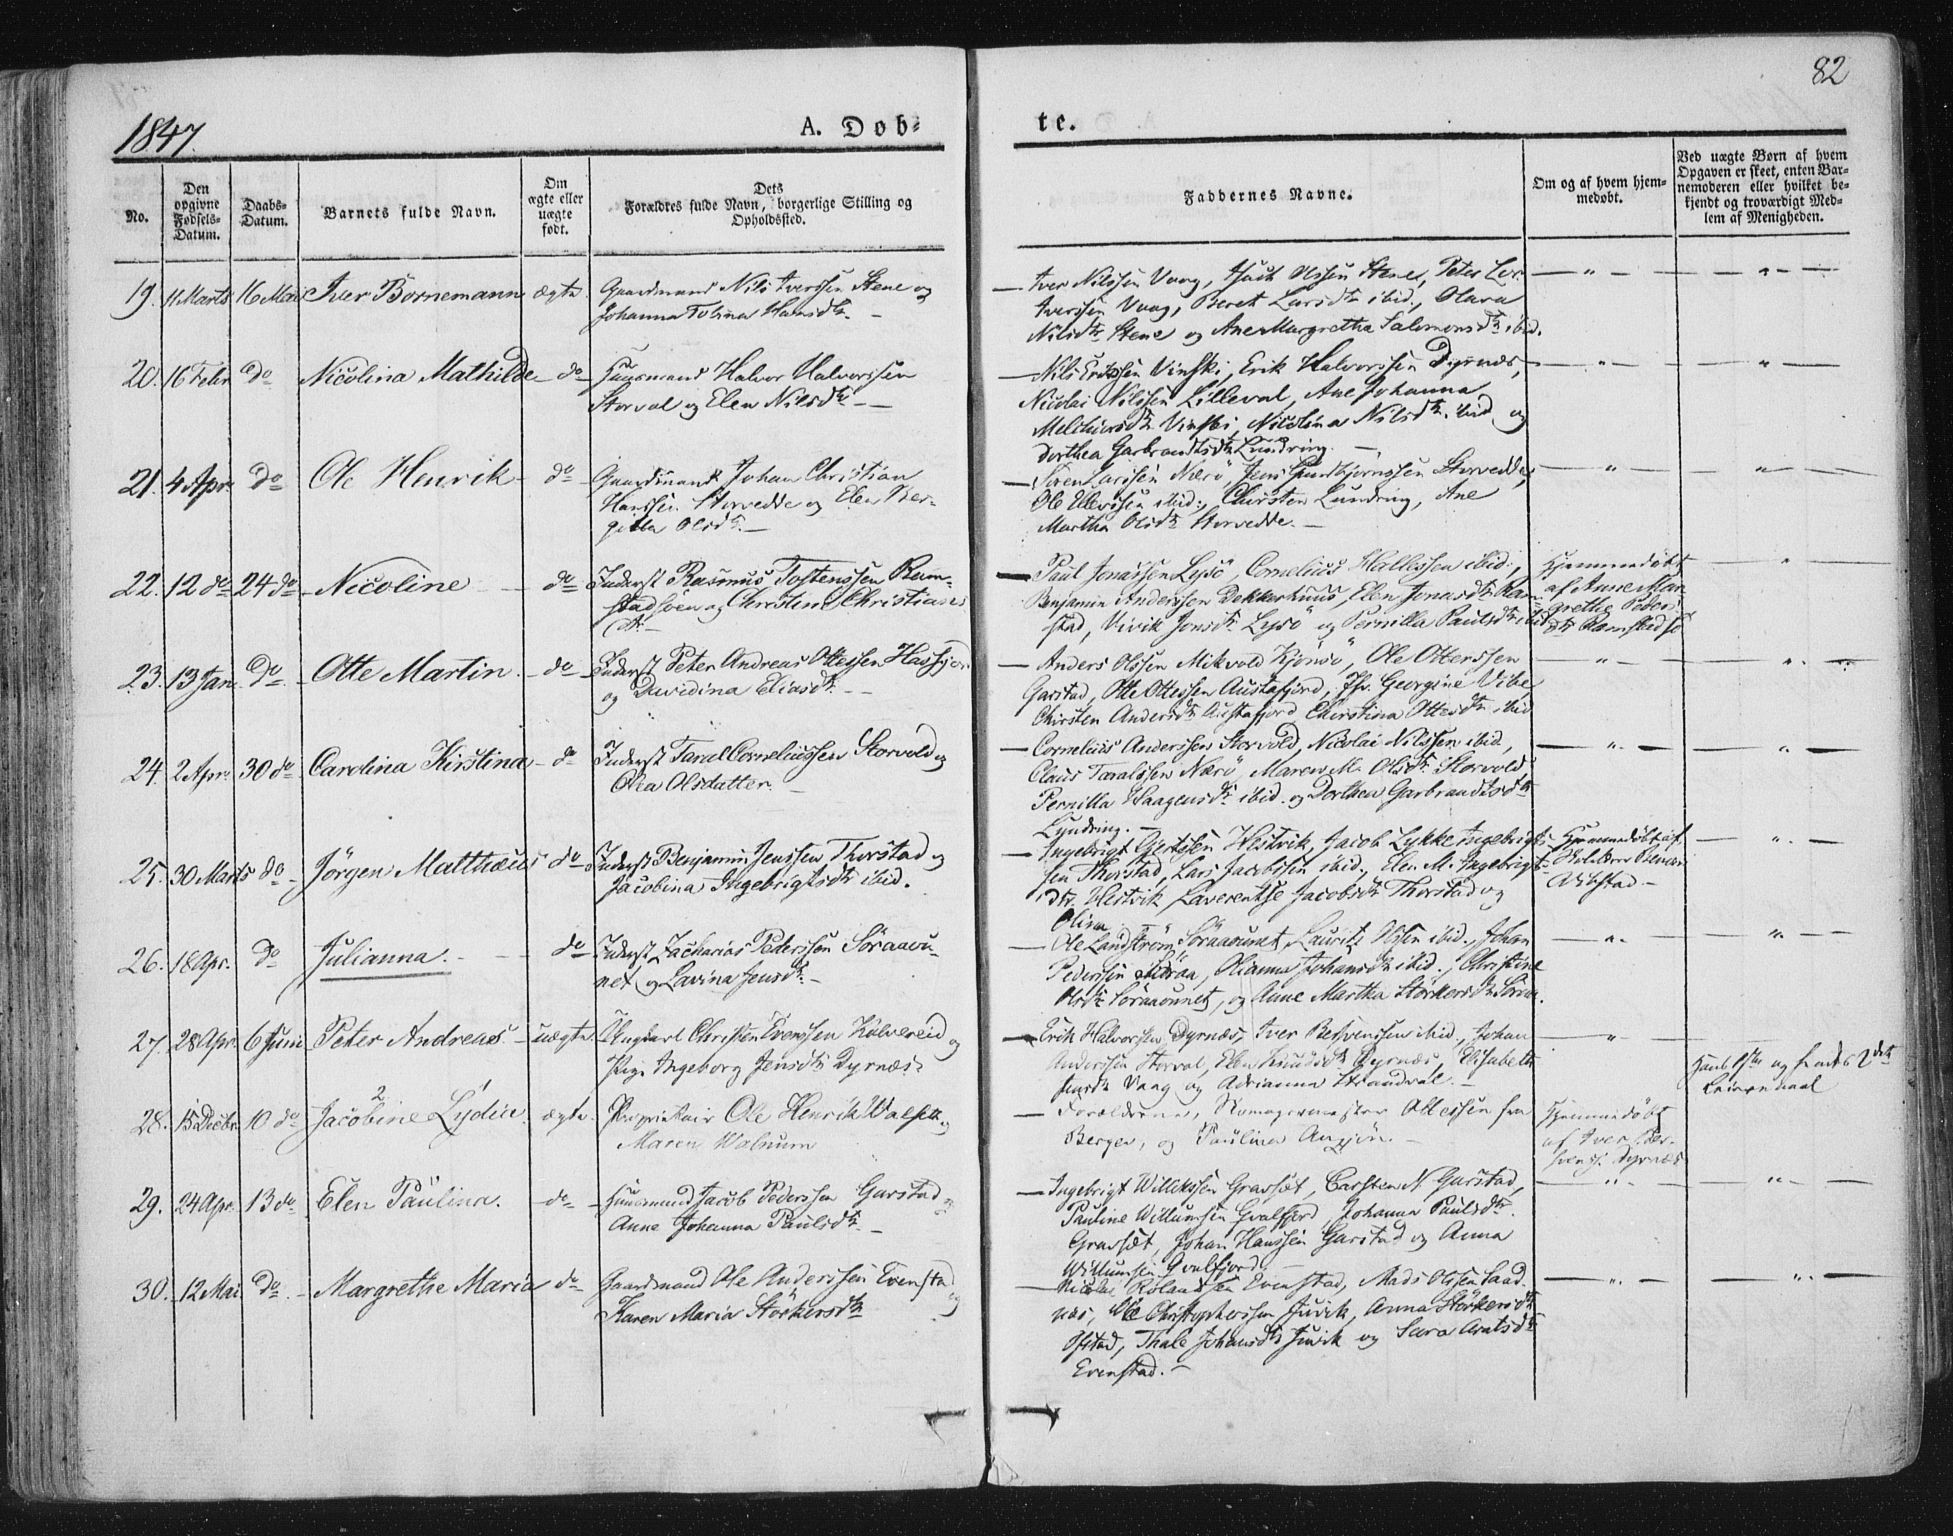 82
1847.
A. Døb-
te.
No.
Den opgivne Fødsels-Datum.
Daabs-Datum.
Barnets fulde Navn.
Om ægte eller uægte født.
Dets Forældres fulde Navn, borgerlige Stilling og Opholdssted.
Faddernes Navne.
Om og af hvem hjem-medøbt.
Ved uægte Børn af hvem Opgaven er skeet, enten Bar-nemoderen eller hvilket be-kjendt og troværdigt Med-lem af Menigheden.
19. 11 Marts 16 Mai Iver Bornemann ægte Gaardmand Nils Iverssen Stene og
Johanna Tobina Hansdtr. –
Iver Nilssen Vaag, Olssen Stene, Peter
Iverssen Vaag, Beret Larsdtr ibid., Olava
Nilsdtr Stene og Ane Margretha Salomonsdtr ibid.
20. 16 Febr do Nicolina Mathilde do Huusmand Halvor Halvorssen
Storval og Elen Nilsdtr –
Nils Vinski, Erik Halvorssen Dyrnæs,
Nicolai Nilssen Lilleval, Ane Johanna
Melchiorsdtr Vinski, Nicolina Nilsdtr ibid og
Dorthea Garbrandtsdtr Lundring. –
21. 4 Apr. do Ole Henrik do Gaardmand Johan Christian
Hanssen Storvedde og Elen Ber-
gitta Olsdtr. –
Søren Larssen Nærø, Jens Storvedde,
Ole Ellevssen ibid., Christen Lundring, Ane
Martha Olsdtr Storvedde. –
22. 12 do 24 do Nicoline do Inderst Rasmus Tostenssen Ram-
stadsøen og Christina Christians
dtr. –
Paul Jonassen Lysø, Cornelius Hallessen ibid.,
Benjamin Anderssen Dekkerhuus, Elen Jonasdtr Ram-
stad, Vivik Jonsdtr Lysø og Pernilla Paulsdtr ibid
Hjemmedøbt
af Anne Mar-
grethe Peders
dtr Ramstadsø
23. 13 Jan. do Otte Martin do Inderst Peter Andreas Ottessen
og Davidina Eliasdtr –
Anders Olssen Mikvold Kjønsø, Ole Otterssen
Garstad, Otte Ottessen Austafjord, Jfr. Georgine Vibe,
Chirsten Andersdtr Austafjord Chirstina Ottesdtr ibid
24. 2 Apr. 30 do Carolina Kirstina do Inderst Taral Corneliussen Storvold og
Olea Olsdatter. –
Cornelius Anderssen Storvold, Nicolai Nilssen ibid,
Claus Taralssen Nærø, Maren M. Olsdtr Storvold
Pernilla Haagensdtr ibid. og Dorthea Garbrandtsdtr
Lundring. –
25. 30 Marts do Jörgen Matthæus do Inderst Benjamin Jenssen Thorstad og
Jacobina Ingebrigtsdtr ibid.
Ingebrigt Gjertssen Hestvik, Jacob Lykke Ingebrigt-
sen Thorstad, Lars Jacobssen ibid., Elen M. Ingebrigts-
dtr. Hestvik, Laverentse Jacobsdtr Thorstad og
Olina
Hjemmedøbt af
Vibstad –
26. 18 Apr. do Julianna. do Inderst Zacharias Pederssen Söraavu-
net og Lavina Jensdtr. –
Ole Landström Söraavunet, Laurits Olssen ibid., Johan
Pederssen, Olianna Johansdtr ibid., Christine
Olsdtr Söraavunet, og Anne Martha Störkersdtr
27. 28 Apr. 6 Juni Peter Andreas uægte. Ungkarl Christen Evenssen Kolvereid og
Pige Ingeborg Jensdtr Dyrnæs.
Erik Halvorsen Dyrnæs, Iver ibid, Johan
Anderssen Storval, Elen Dyrnæs, Elisabeth
Jensdtr Vaag og Adrianna Strandval. –
Hans 1ste og hendes 2det
Leiermaal
28. 15 Decbr. 10 do Jacobine Lydia ægte. Proprietair Ole Henrik Walseth og
Maren Walnum
Forældrene, Ottessen fra
Bergen, og Paulina Anzjön. –
Hjemmedøbt
af Iver
Dyrnæs
29. 24 Apr. 13 do Elen Paulina. do Huusmand Jacob Pederssen Garstad og
Anne Johanna Paulsdtr. –
Ingebrigt Willikssen Grassæt, Carsten N. Garstad,
Pauline Willumsen Gvalfjord, Johanna Paulsdtr
Grassæt, Johan Hanssen Garstad og Anna
Willumsen Gvalfjord. –
30. 12 Mai do Margrethe Maria do Gaardmand Ole Anderssen Evenstad og
Karen Maria Störkersdtr
Nicolai Rolandssen Evenstad, Mads Olssen Saad
næs, Ole Christophersen Juvik, Anna Störkersdtr
Ofstad, Thale Johansdtr Juvik og Sara Aralsdtr
Evenstad. –